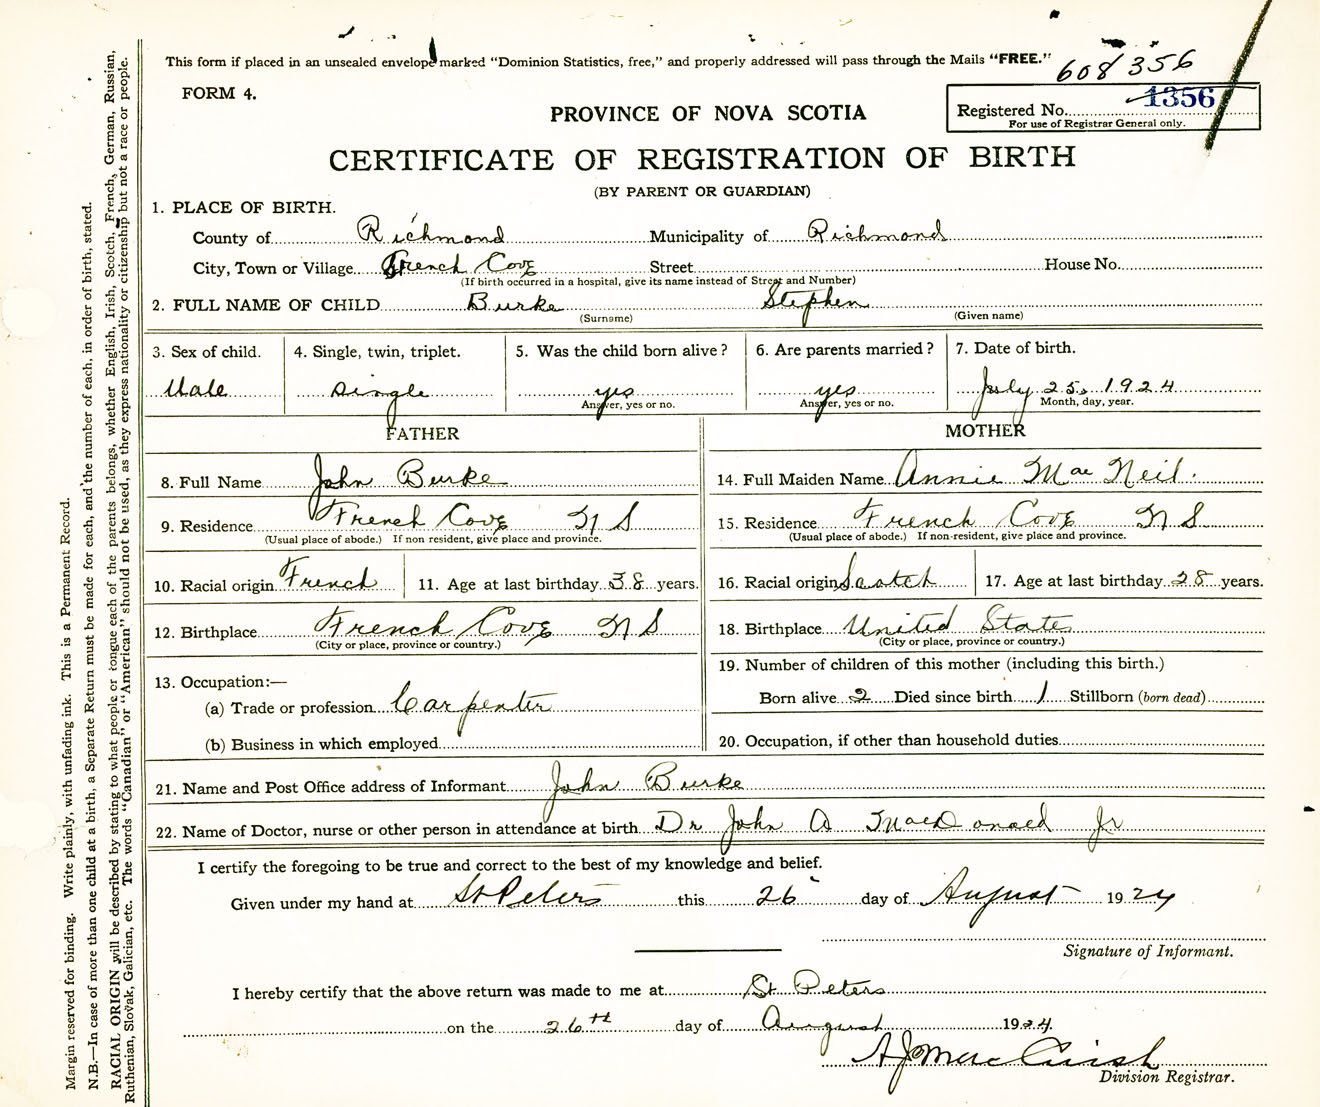 This form if placed in an unsealed envelope marked "Dominion Statistics, free," and properly addressed will pass through the Mails "FREE."
608356
FORM 4.
PROVINCE OF NOVA SCOTIA
Registered No. 1356
For use of Registrar General only.
CERTIFICATE OF REGISTRATION OF BIRTH
(BY PARENT OR GUARDIAN)
1. PLACE OF BIRTH.
County of Richmond Municipality of Richmond
City, Town or Village French Cove Street House No.
(If birth occurred in a hospital, give its name instead of Street and Number)
2. FULL NAME OF CHILD Burke Stephen
(Surname) (Given name)
3. Sex of child. 4. Single, twin, triplet. 5. Was the child born alive? 6. Are parents married? 7. Date of birth.
Male single yes yes July 25, 1924
Answer, yes or no. Answer, yes or no. Month, day, year.
FATHER MOTHER
8. Full Name John Burke 14. Full Maiden Name Annie Mac Neil.
9. Residence French Cove N S 15. Residence French Cove N S
(Usual place of abode.) If non resident, give place and province. (Usual place of abode.) If non-resident, give place and province.
10. Racial origin French 11. Age at last birthday 38 years. 16. Racial origin Scotch 17. Age at last birthday 28 years.
12. Birthplace French Cove N S 18. Birthplace United States
(City or place, province or country.) (City or place, province or country.)
13. Occupation:— 19. Number of children of this mother (including this birth.)
(a) Trade or profession Carpenter Born alive 2 Died since birth 1 Stillborn (born dead)
(b) Business in which employed 20. Occupation, if other than household duties
21. Name and Post Office address of Informant John Burke
22. Name of Doctor, nurse or other person in attendance at birth Dr John A MacDonald Jr
I certify the foregoing to be true and correct to the best of my knowledge and belief.
Given under my hand at St Peters this 26 day of August 1924
Signature of Informant.
I hereby certify that the above return was made to me at St Peters
on the 26th day of August 1924.
A J Mac
Division Registrar.
Margin reserved for binding. Write plainly, with unfading ink. This is a Permanent Record.
N.B.—In case of more than one child at a birth, a Separate Return must be made for each, and the number of each, in order of birth, stated.
RACIAL ORIGIN will be described by stating to what people or tongue each of the parents belongs, whether English, Irish, Scotch, French, German, Russian,
Ruthenian, Slovak, Galician, etc. The words "Canadian" or "American" should not be used, as they express nationality or citizenship but not a race or people.